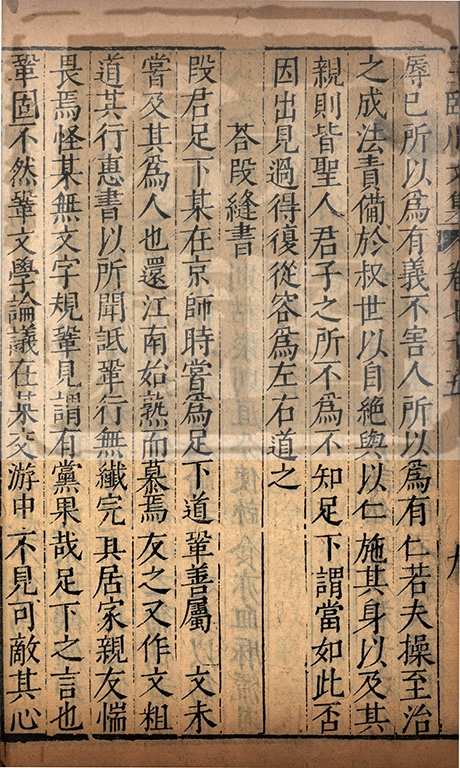 辱已所以為有義不害人所以為有仁若夫操至治
之成法責備於叔世以自絶與以仁施其身以及其
親則皆聖人君子之所不為不知足下謂當如此否
因出見過得復從容為左右道之
荅段縫書
段君足下某在京師時嘗為足下道鞏善屬 文未
嘗及其為人也還江南始熟而慕焉友之又作文粗
道其行惠書以所聞詆鞏行無纖完其居家親友惴
畏焉怪某無文字規鞏見謂有黨果哉足下之言也
鞏固不然鞏文學論議在某交游中不見可敵其心